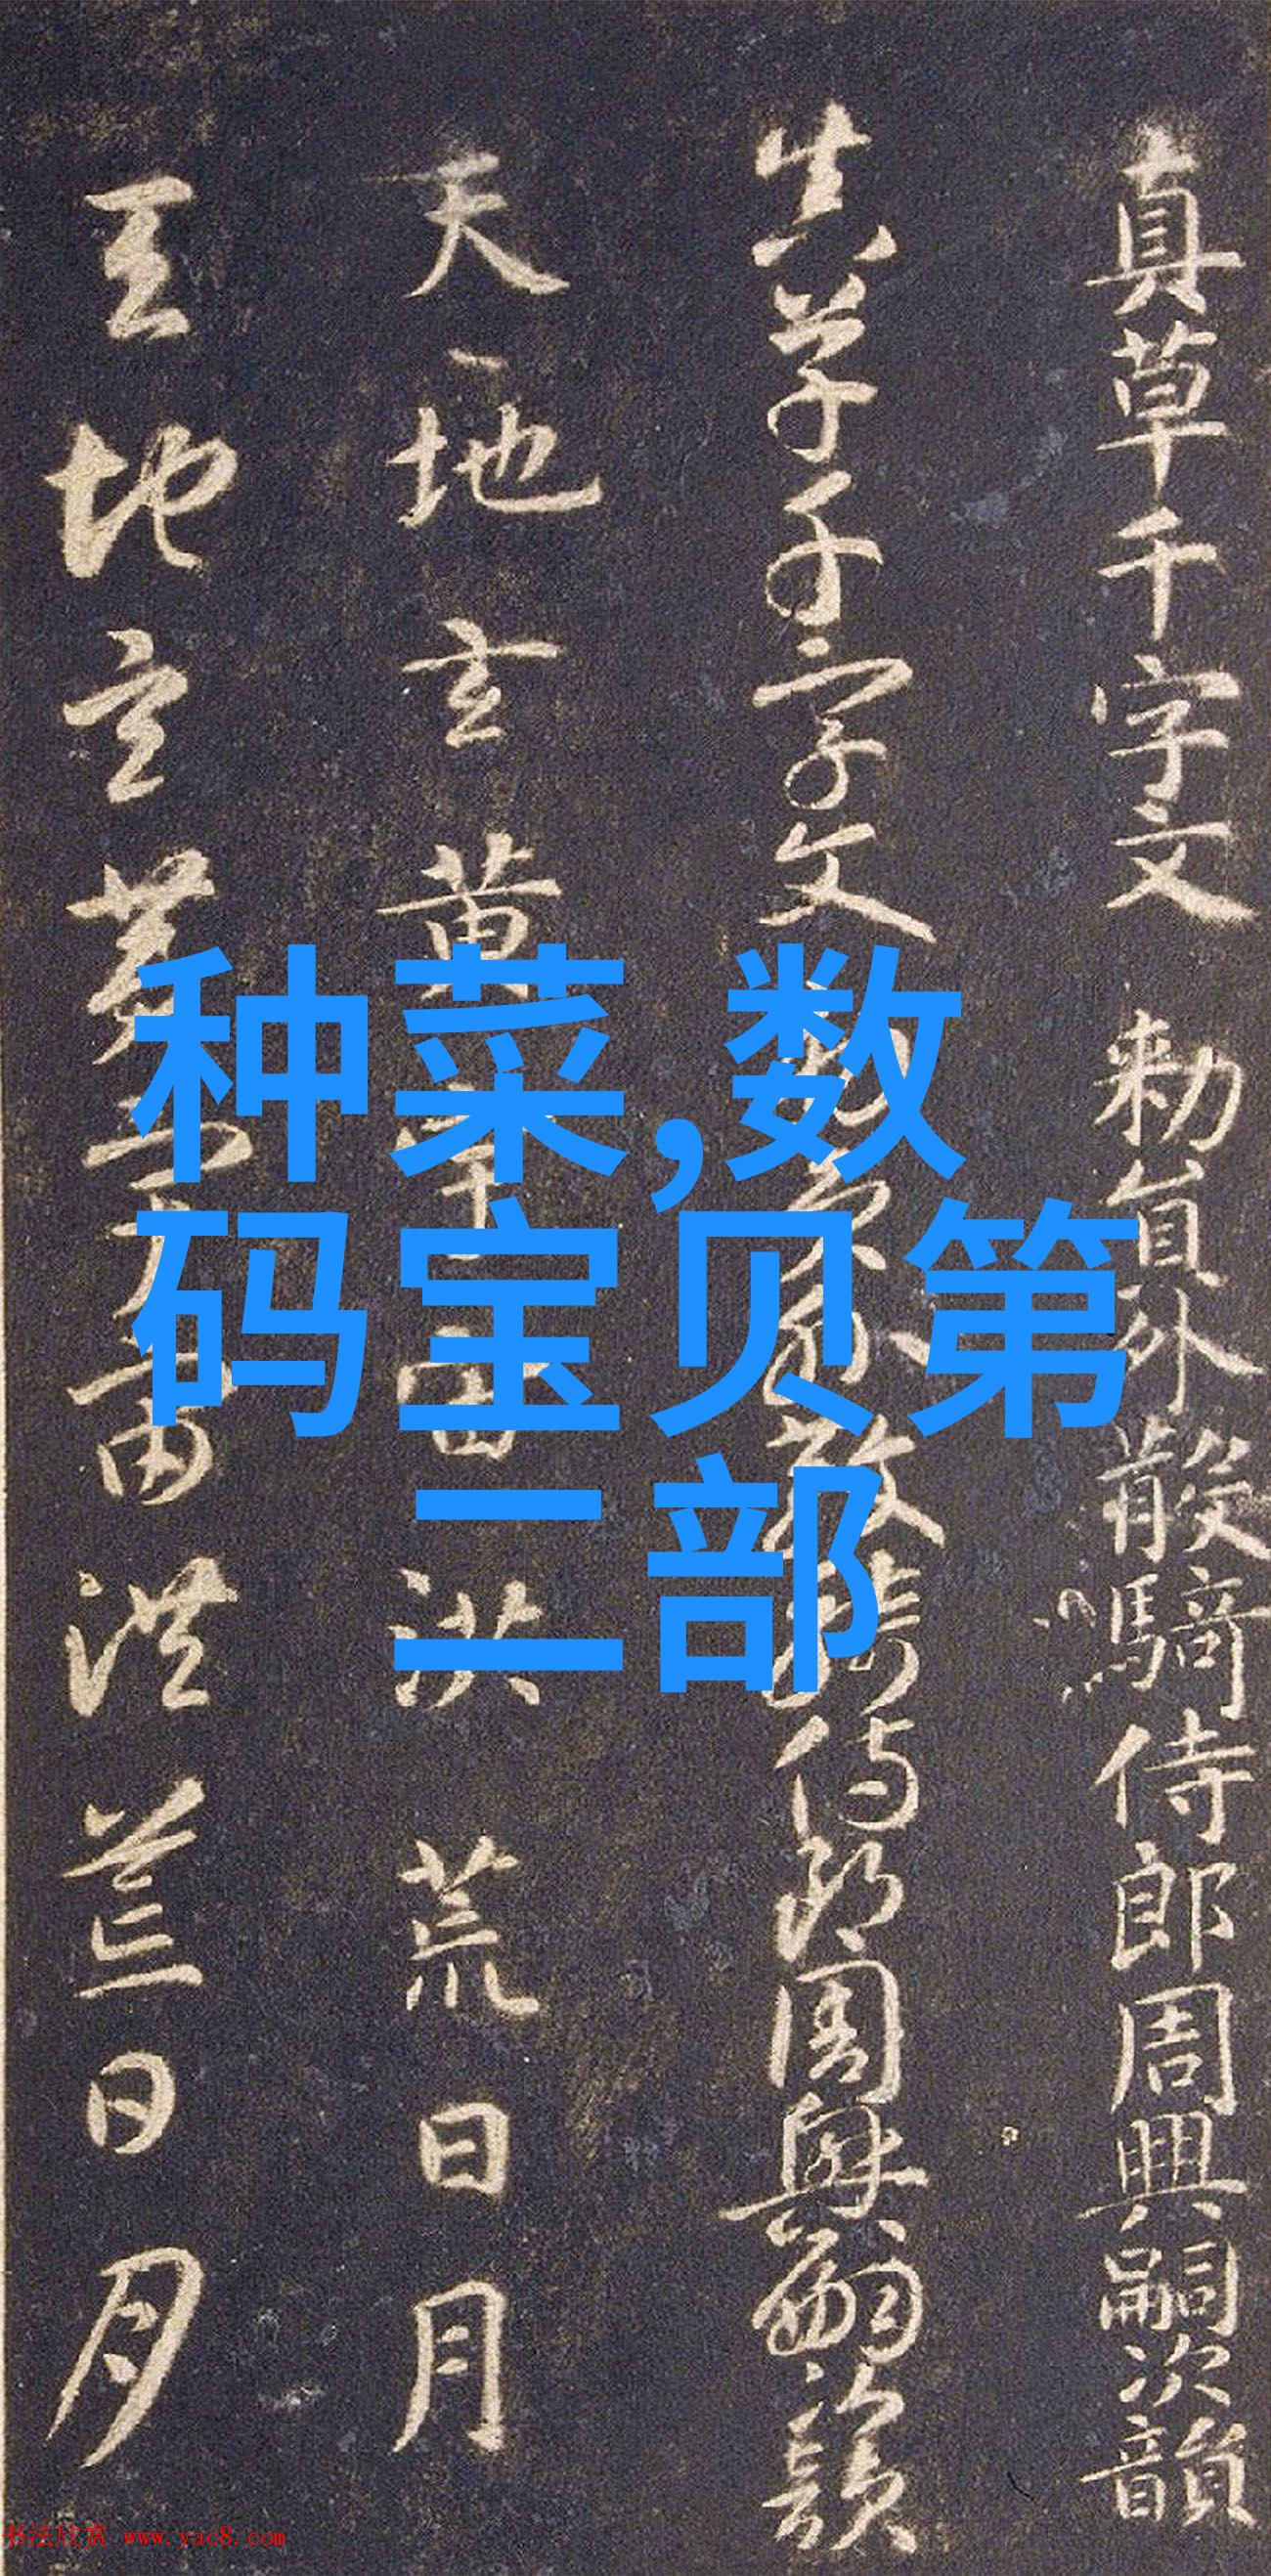 真草千字文 勅員外散騎侍郎周興嗣次韻
真草千字文 勅員外散騎侍郎周興嗣次韻
天地玄黄宇宙洪荒日月
天地玄黄宇宙洪荒日月
种菜,数
码宝贝第
二部
书法欣赏 www.yac8.com